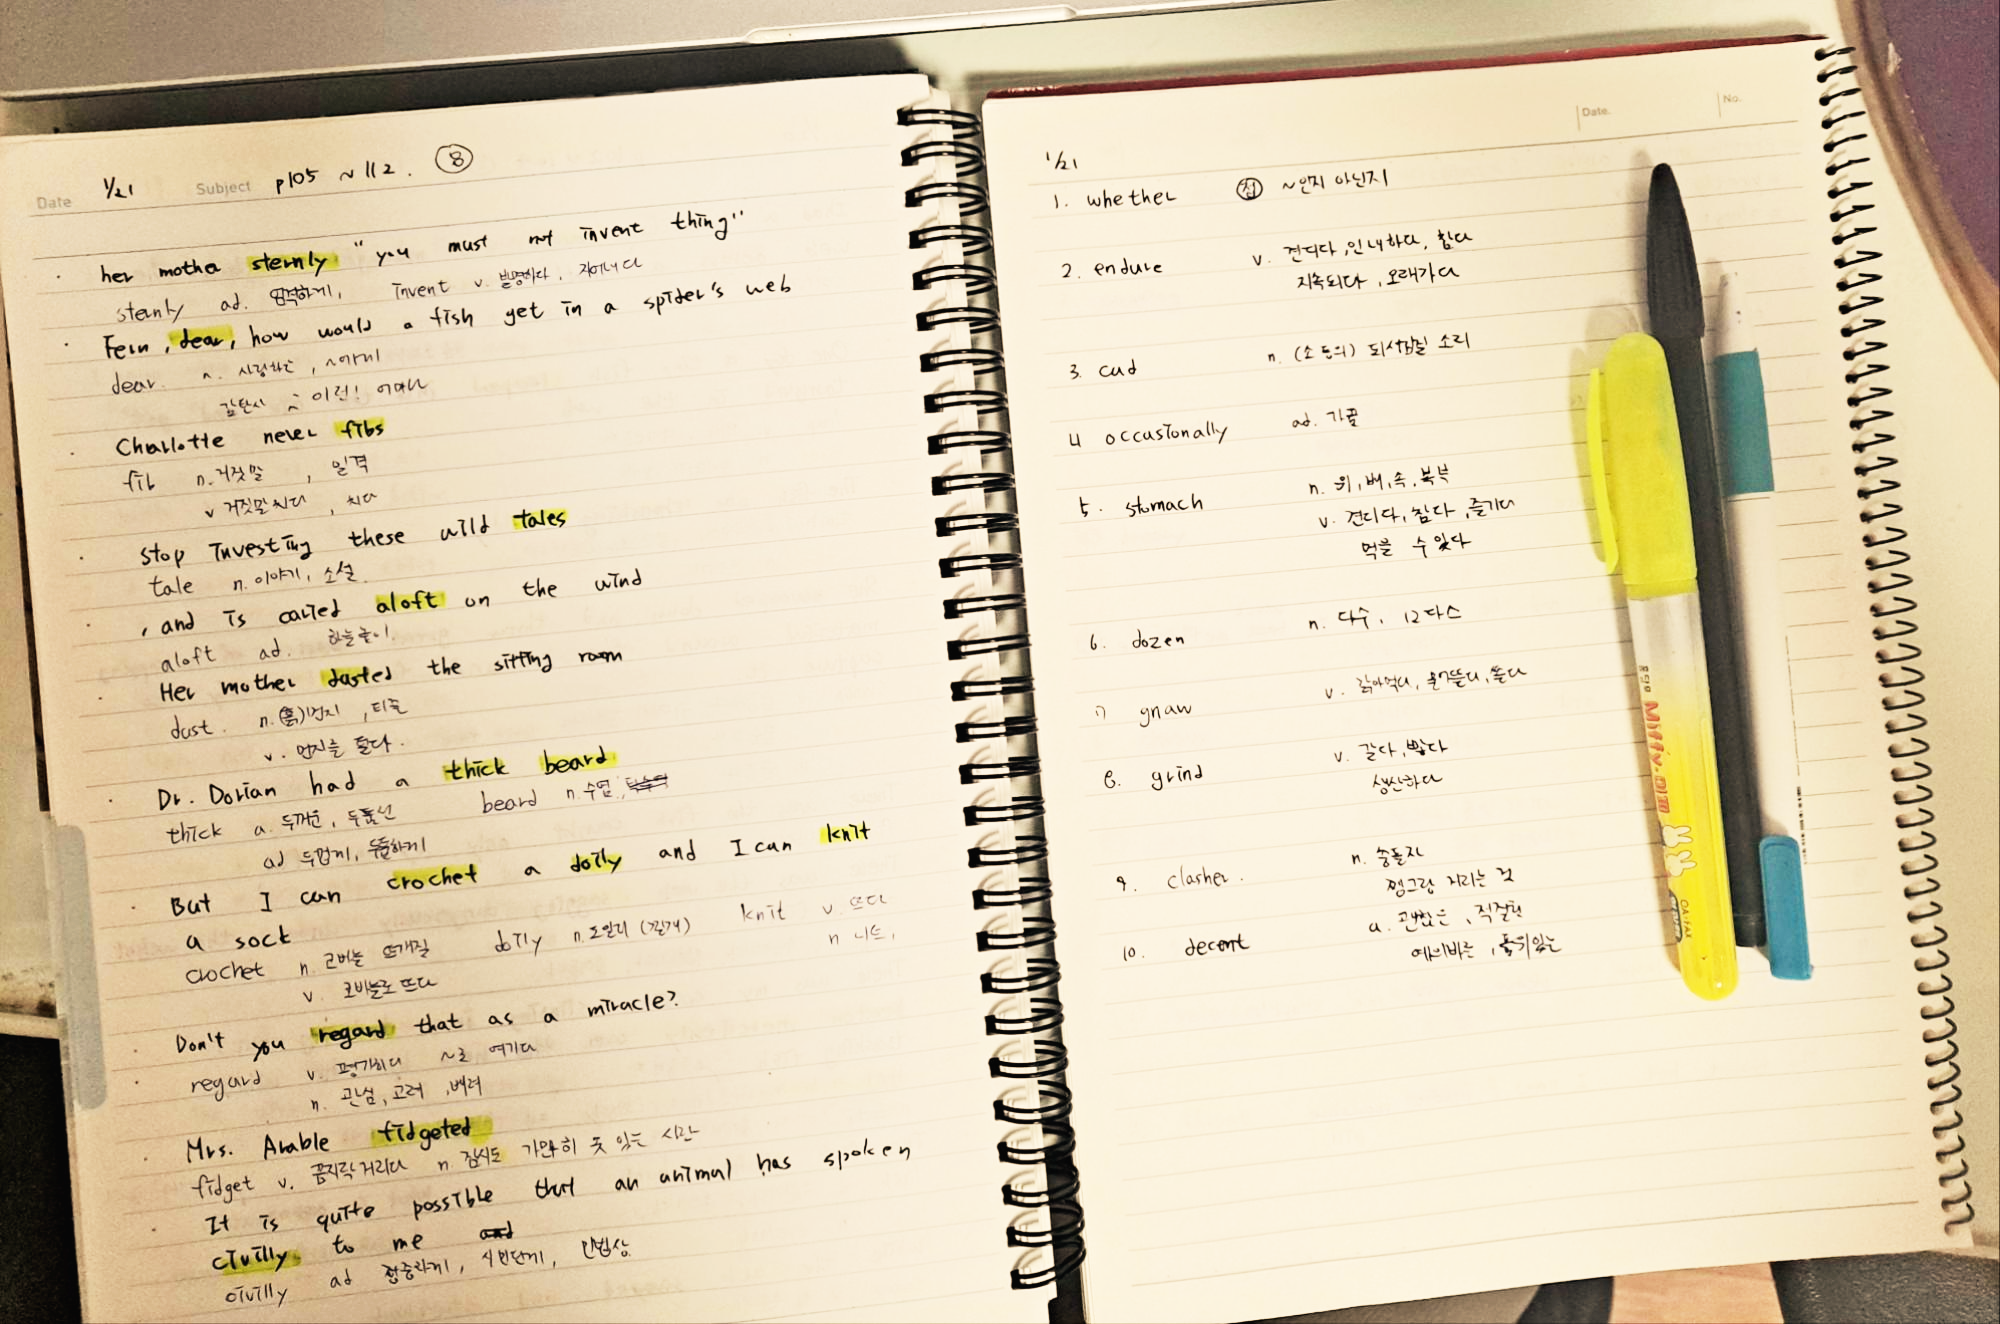 Date 1/21 Subject p105 ~ 112. ⑧
· her mother sternly "you must not invent thing"
sternly ad. 엄격하게, invent v. 발명하다, 지어내다
· Fern, dear, how would a fish get in a spider's web
dear. n. 사랑하는, ~에게
감탄사 : 이런! 어머나
Charlotte never fibs
fib n. 거짓말, 일격
v 거짓말치다, 치다
· stop investing these wild tales
tale n. 이야기, 소설
· , and is carried aloft on the wind
aloft ad. 하늘높이
· Her mother dusted the sitting room
dust. n. (흙)먼지, 티끌
v. 먼지를 털다.
· Dr. Dorian had a thick beard
thick a. 두꺼운, 두툼한 beard n. 수염,
ad 두껍게, 두툼하게
· But I can crochet a doily and I can knit
a sock
crochet n. 코바늘 뜨개질 doily n. 도일리 (깔개) knit v. 뜨다
v. 코바늘로 뜨다 n 니트,
· Don't you regard that as a miracle?
regard v. 평가하다 ~로 여기다
n. 관념, 고려, 배려
· Mrs. Arable fidgeted
fidget v. 꼼지락거리다 n. 잠시도 가만히 못 있는 시간
· It is quite possible that an animal has spoken
civilly to me and
civilly ad 정중하게, 시민답게, 민법상
Date. No.
1/21
1. whether 접 ~인지 아닌지
2. endure v. 견디다, 인내하다, 참다
지속되다, 오래가다
3. cud n. (소 등의) 되새김질 소리
4 occasionally ad. 가끔
5. stomach n. 위, 배, 속, 복부
v. 견디다, 참다, 즐기다
먹을 수 있다
6. dozen n. 다수, 12다스
7 gnaw v. 갉아먹다, 물어뜯다, 뚫다
8. grind v. 갈다, 빻다
생산하다
9. clasher. n. 충돌자
쨍그랑 거리는 것
10. decent a. 괜찮은, 적절한
예의바른, 품위있는
Miffy.